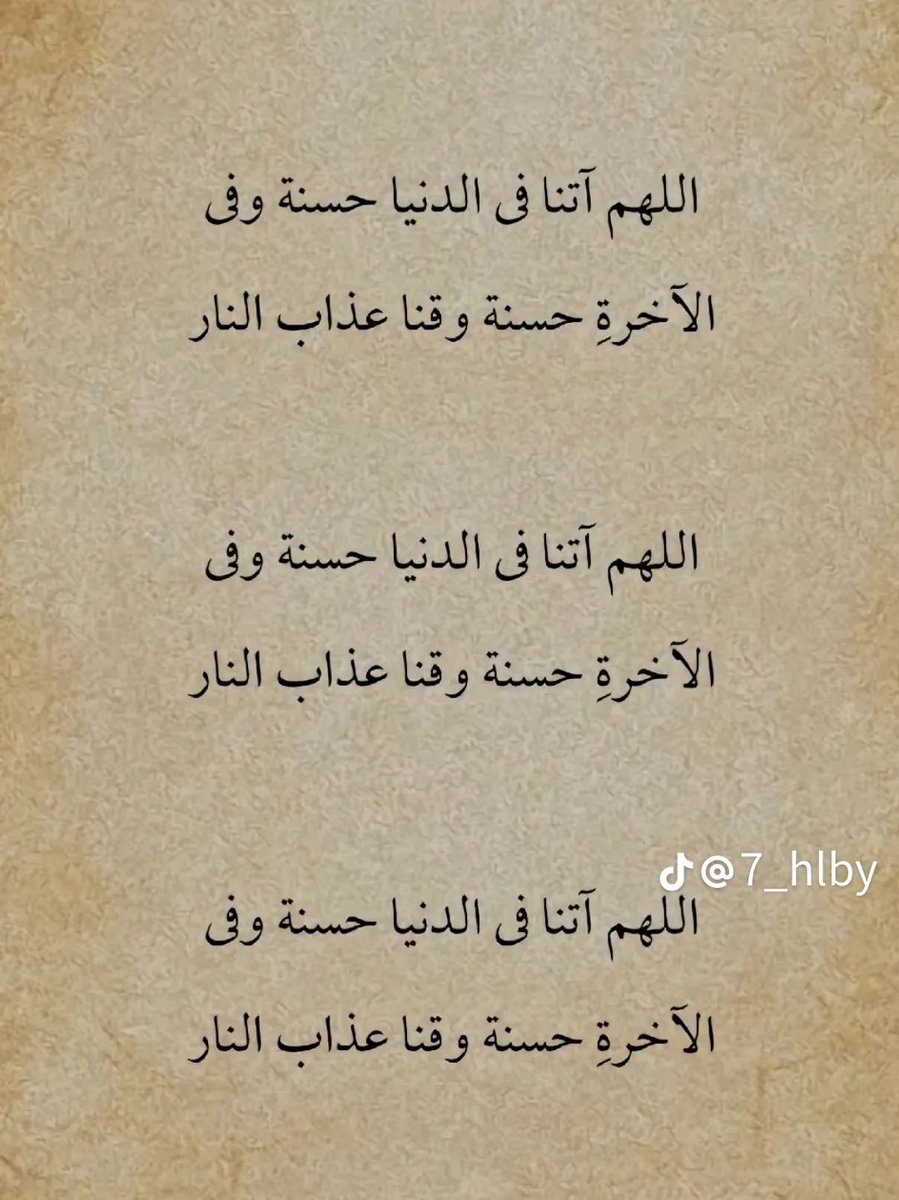 اللهم آتنا فى الدنيا حسنة وفى
الآخرةِ حسنة وقنا عذاب النار
اللهم آتنا فى الدنيا حسنة وفى
الآخرةِ حسنة وقنا عذاب النار
@7_hlby
اللهم آتنا فى الدنيا حسنة وفى
الآخرةِ حسنة وقنا عذاب النار